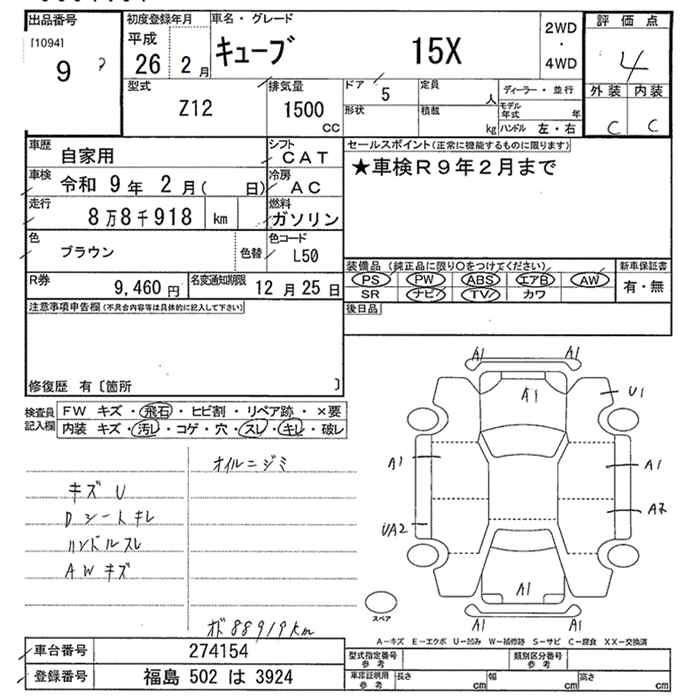 出品番号
[1094]
9
初度登録年月
平成
26 2 月
車名・グレード
キューブ 15X
2WD
・
4WD
評価点
4
外装 内装
C C
型式
Z12
排気量
1500
CC
ドア
5
形状
定員
人
積載
kg
ディーラー・並行
モデル
年式 年
ハンドル 左・右
車歴
自家用
シフト
CAT
車検
令和 9 年 2 月 ( 日)
冷房
AC
走行
8 万 8 千 918 km
燃料
ガソリン
色
ブラウン
色替
色コード
L50
R券
9,460 円
名変通知期限
12 月 25 日
セールスポイント(正常に機能するものに限ります)
★車検R9年2月まで
装備品 (純正品に限り○をつけてください)
PS PW ABS エアB AW
SR ナビ TV カワ
新車保証書
有・無
後日品
注意事項申告欄(不具合内容等は具体的に記入して下さい)
修復歴 有〔箇所 〕
検査員
記入欄
FW キズ・飛石・ヒビ割・リペア跡・×要
内装 キズ・汚レ・コゲ・穴・スレ・キレ・破レ
オイルニジミ
キズ U
Dシートキレ
ハンドルスレ
AWキズ
オド 88919km
A1 A1
A1
U1
A1 A1
A2
UA2
A1
A1 A1
スペア
A－キズ E－エクボ U－凹み W－補修跡 S－サビ C－腐食 XX－交換済
車台番号
274154
登録番号
福島 502 は 3924
型式指定番号
参考
類別区分番号
参考
車庫証明用
参考
長さ cm
幅 cm
高さ cm